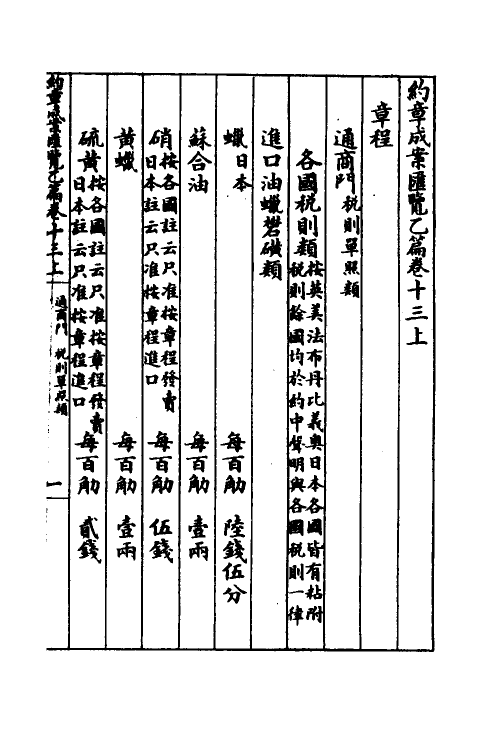 約章成案匯覽乙篇卷十三上
章程
通商門 稅則單照類
各國稅則類 按英美法布丹比義奧日本各國皆有粘附
稅則餘國均於約中聲明與各國稅則一律
進口油蠟礬磺類
蠟日本 每百觔 陸錢伍分
蘇合油 每百觔 壹兩
硝 按各國註云只准按章程發賣
日本註云只准按章程進口 每百觔 伍錢
黃蠟 每百觔 壹兩
硫黃 按各國註云只准按章程發賣
日本註云只准按章程進口 每百觔 貳錢
約章成案匯覽乙篇卷十三上 通商門 稅則單照類 一